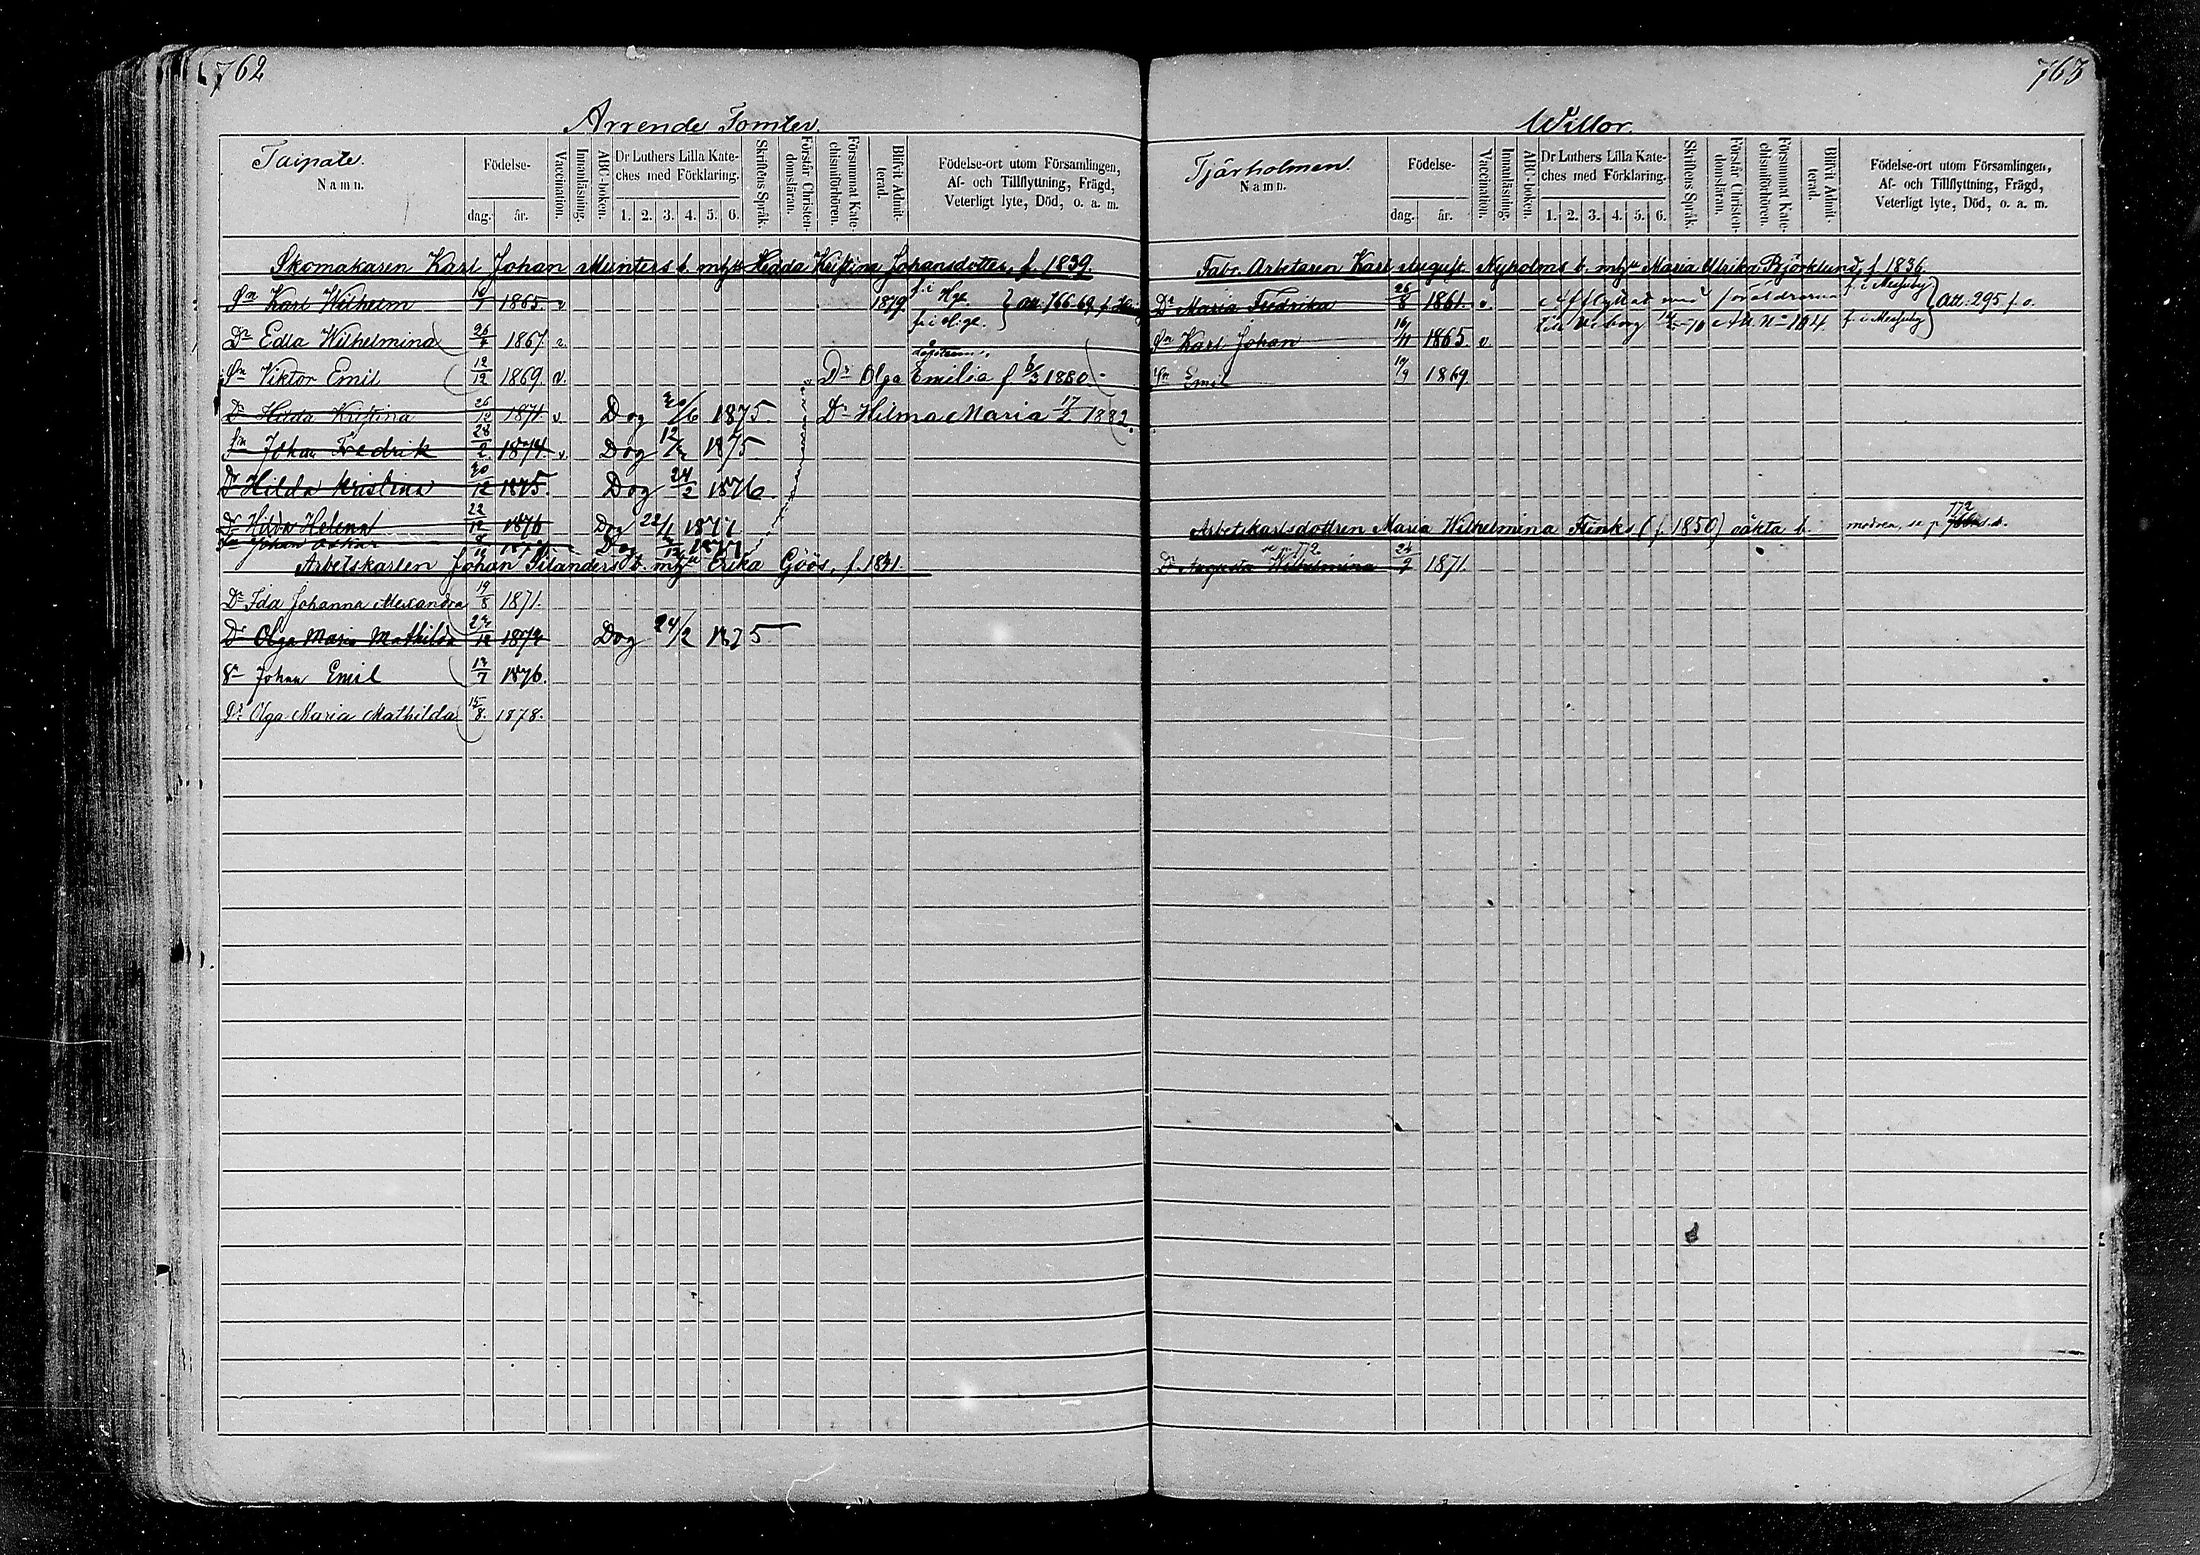 762
Arrende Tomter.
Taipale.
Namn.
Födelse-
dag. år.
Vaccination.
Innanläsning.
ABC-boken.
Dr Luthers Lilla Kate-
ches med Förklaring.
1. 2. 3. 4. 5. 6.
Skriftens Språk.
Förstår Christen-
domsläran.
Försummat Kate-
chismiförhören.
Blifvit Admit-
terad.
Födelse-ort utom Församlingen,
Af- och Tillflyttning, Frägd,
Veterligt lyte, Död, o. a. m.
Skomakaren Karl Johan Munters b. m. h. Hedda Kristina Johansdotter, f. 1839.
Sn Karl Wilhelm 1865 v 1879. f. i Hge. att. 766. 69. f.
Dr Edla Wilhelmina 26/4 1867. v. f. i Hge.
Sn Viktor Emil 12/12 1869. v. Dr Olga Emilia f 6/3 1880
Dr Hilda Kristina 1871. v Dog 20/6 1875. Dr Helma Maria 17/2 1882.
Sn Johan Fredrik 28/2 1874. v Dog 1875.
Dr Hilda Kristina 1875. Dog 24/2 1876
Dr Hilda Helena 22/12 1876 Dog 22/1 1877
Sn Johan Oskar 1877 Dog 1877
Arbetskarlen Johan Silanders b. m. h. Erika Göös, f. 1831.
Dr Ida Johanna Alexandra 19/8 1871.
Dr Olga Maria Mathilda Dog 24/2 1875
Sn Johan Emil 1876.
Dr Olga Maria Mathilda 15/8. 1878.
763
Willor.
Tjärholmen.
Namn.
Födelse-
dag. år.
Vaccination.
Innanläsning.
ABC-boken.
Dr Luthers Lilla Kate-
ches med Förklaring.
1. 2. 3. 4. 5. 6.
Skriftens Språk.
Förstår Christen-
domsläran.
Försummat Kate-
chismiförhören.
Blifvit Admit-
terad.
Födelse-ort utom Församlingen,
Af- och Tillflyttning, Frägd,
Veterligt lyte, Död, o. a. m.
Fabr. Arbetaren Karl August Nyholms b. m. h. Maria Ulrika Björklund, f. 1836.
Dr Maria Fredrika 26/8 1861. v. Afflyttad med föräldrarna f. i Messuby att. 295 f. o.
till Viborg 70 Att. No 104. f. i Messuby
Sn Karl Johan 1865. v
Sn Emil 1869
Arbetskarlsdottren Maria Wilhelmina Flinks (f. 1850) oäkta b. modren, se p 772
se p. 772
Dr Augusta Wilhelmina 1871.